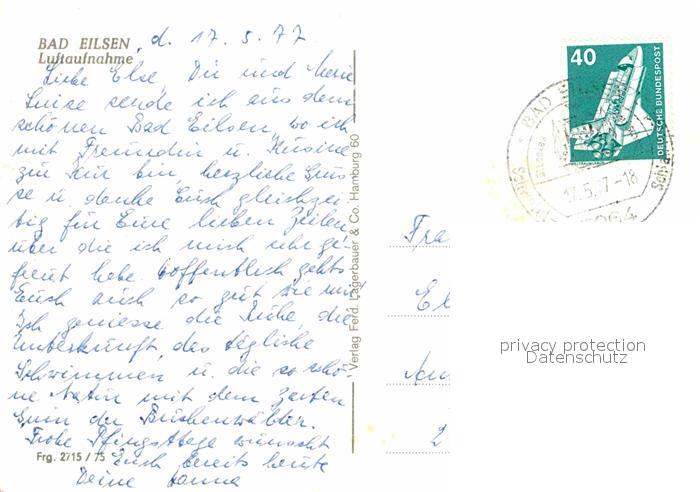 BAD EILSEN, d. 17.5.77
Luftaufnahme
Liebe Else, Dir und
Luise sende ich aus dem
schönen Bad Eilsen, wo ich
mit Freundin u. Kusine
zur Kur bin, herzliche Grüs-
se u. danke Euch gleichzei-
tig für Eure lieben Zeilen,
über die ich mich sehr ge-
freut habe. Hoffentlich gehts
Euch auch so gut wie mir
Ich geniesse die Ruhe, die
Unterkunft, das tägliche
Schwimmen u. die so schö-
ne Natur mit dem zarten
Grün der Buchenwälder.
Frohe Pfingsttage wünscht
Euch bereits heute
Deine Hanna
Frg. 2715 / 75
Verlag Ferd. Lagerbauer & Co. Hamburg 60
40
DEUTSCHE BUNDESPOST
BAD EILSEN
17.5.77-18
3064
Fra
El
2
privacy protection
Datenschutz